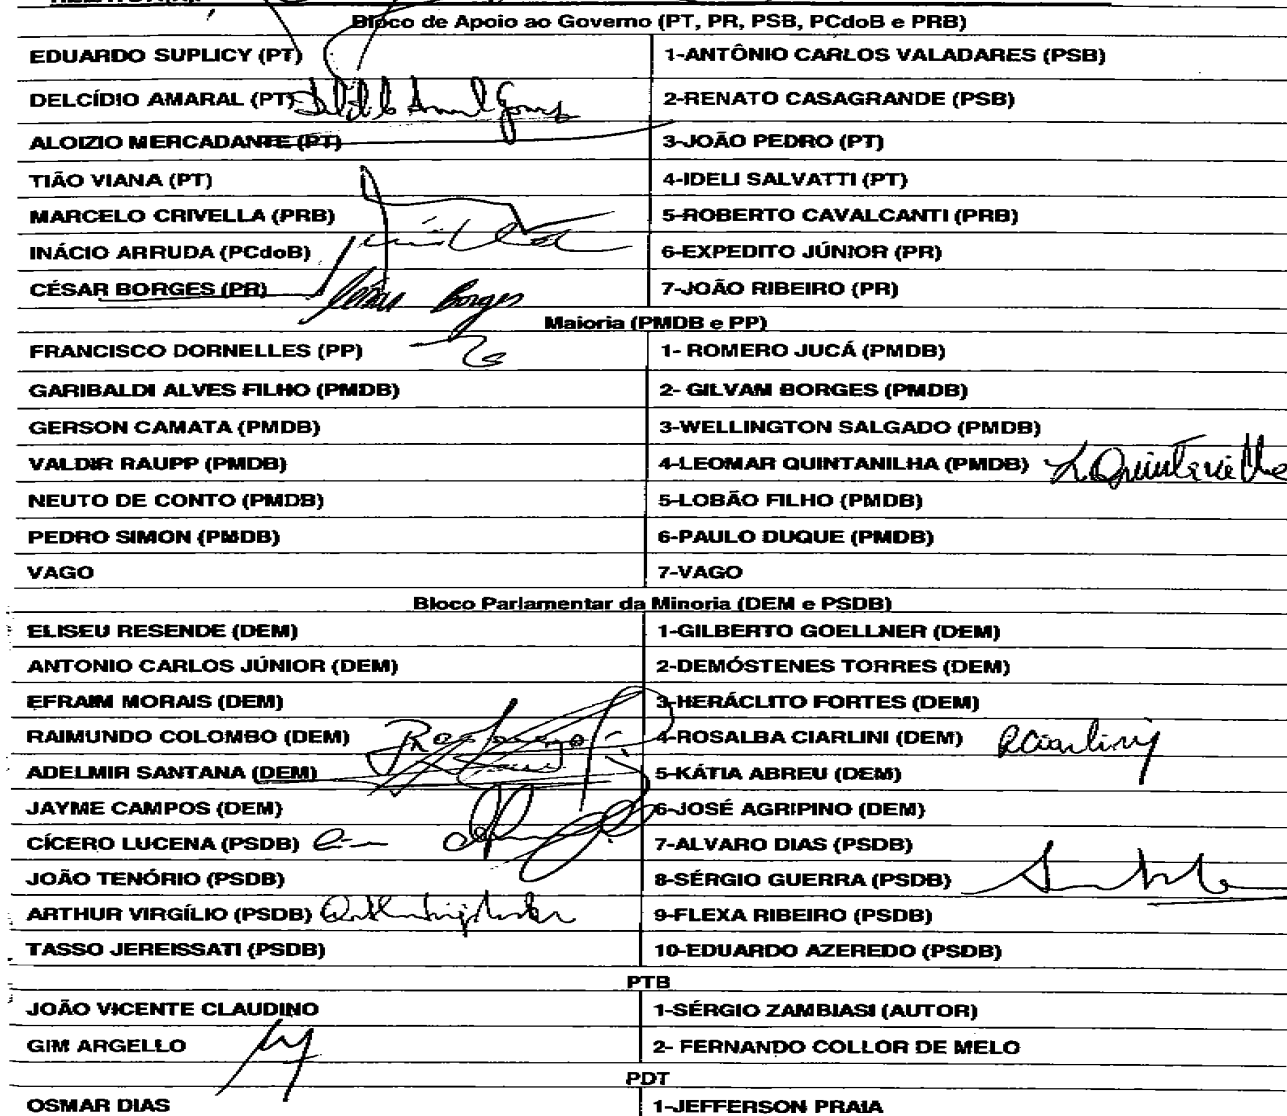 Bloco de Apoio ao Governo (PT, PR, PSB, PCdoB e PRB)
EDUARDO SUPLICY (PT) 1-ANTÔNIO CARLOS VALADARES (PSB)
DELCÍDIO AMARAL (PT) 2-RENATO CASAGRANDE (PSB)
ALOIZIO MERCADANTE (PT) 3-JOÃO PEDRO (PT)
TIÃO VIANA (PT) 4-IDELI SALVATTI (PT)
MARCELO CRIVELLA (PRB) 5-ROBERTO CAVALCANTI (PRB)
INÁCIO ARRUDA (PCdoB) 6-EXPEDITO JÚNIOR (PR)
CÉSAR BORGES (PR) César Borges 7-JOÃO RIBEIRO (PR)
Maioria (PMDB e PP)
FRANCISCO DORNELLES (PP) 1- ROMERO JUCÁ (PMDB)
GARIBALDI ALVES FILHO (PMDB) 2- GILVAM BORGES (PMDB)
GERSON CAMATA (PMDB) 3-WELLINGTON SALGADO (PMDB)
VALDIR RAUPP (PMDB) 4-LEOMAR QUINTANILHA (PMDB) L Quintanilha
NEUTO DE CONTO (PMDB) 5-LOBÃO FILHO (PMDB)
PEDRO SIMON (PMDB) 6-PAULO DUQUE (PMDB)
VAGO 7-VAGO
Bloco Parlamentar da Minoria (DEM e PSDB)
ELISEU RESENDE (DEM) 1-GILBERTO GOELLNER (DEM)
ANTONIO CARLOS JÚNIOR (DEM) 2-DEMÓSTENES TORRES (DEM)
EFRAIM MORAIS (DEM) 3-HERÁCLITO FORTES (DEM)
RAIMUNDO COLOMBO (DEM) 4-ROSALBA CIARLINI (DEM) RCiarlini
ADELMIR SANTANA (DEM) 5-KÁTIA ABREU (DEM)
JAYME CAMPOS (DEM) 6-JOSÉ AGRIPINO (DEM)
CÍCERO LUCENA (PSDB) 7-ALVARO DIAS (PSDB)
JOÃO TENÓRIO (PSDB) 8-SÉRGIO GUERRA (PSDB)
ARTHUR VIRGÍLIO (PSDB) 9-FLEXA RIBEIRO (PSDB)
TASSO JEREISSATI (PSDB) 10-EDUARDO AZEREDO (PSDB)
PTB
JOÃO VICENTE CLAUDINO 1-SÉRGIO ZAMBIASI (AUTOR)
GIM ARGELLO 2- FERNANDO COLLOR DE MELO
PDT
OSMAR DIAS 1-JEFFERSON PRAIA